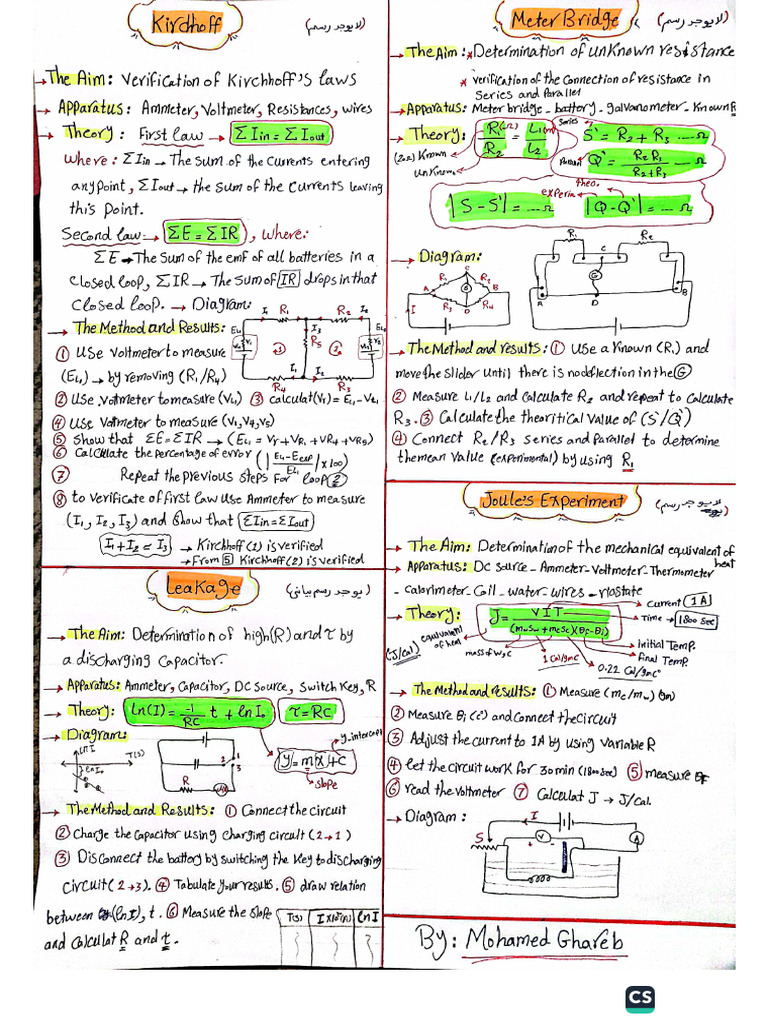 Kirchhoff
(لا يوجد رسم)
→ The Aim: Verification of Kirchhoff's laws
→ Apparatus: Ammeter, Voltmeter, Resistances, wires
→ Theory: First law → ΣIin = ΣIout
where: ΣIin → The sum of the currents entering
any point, ΣIout → the sum of the currents leaving
this point.
Second law: → ΣE = ΣIR, where:
ΣE → The sum of the emf of all batteries in a
closed loop, ΣIR → The sum of IR drops in that
closed loop. → Diagram:
→ The Method and Results:
I1 R1 R2 I2
I3 R5
R4 I1 I2 R3
① Use voltmeter to measure
(EL1) → by removing (R1/R4)
② Use voltmeter to measure (VL1) ③ calculat (Vr) = EL1 - VL1
④ Use Voltmeter to measure (V1,V4,V5)
⑤ Show that ΣE = ΣIR → (EL1 = Vr + VR1 + VR4 + VR5)
⑥ Calculate the percentage of error (|EL1-Eexp/EL1|x100)
⑦ Repeat the previous steps For loop ②
⑧ to verificate of first law use Ammeter to measure
(I1, I2, I3) and show that ΣIin=ΣIout
I1 + I2 = I3 → Kirchhoff (1) is verified
→ From ⑤ Kirchhoff (2) is verified
Leakage
(يوجد رسم بياني)
→ The Aim: Determination of high(R) and τ by
a discharging Capacitor.
→ Apparatus: Ammeter, Capacitor, DC Source, Switch Key, R
→ Theory: ln(I) = -1/RC t + ln I0 τ = RC
→ Diagram:
y-intercept
y = mx + c
slope
ln I
T(s)
ln I0
1
2
3
R
→ The Method and Results: ① Connect the circuit
② Charge the Capacitor using charging circuit (2→1)
③ Disconnect the battery by switching the Key to discharging
circuit (2→3). ④ Tabulate your results. ⑤ draw relation
between (ln I), t. ⑥ Measure the slope
and calculat R and τ.
T(s) ln I
Meter Bridge
(لا يوجد رسم)
→ The Aim: * Determination of unknown resistance
* verification of the Connection of resistance in
Series and Parallel
→ Apparatus: Meter bridge - battery - galvanometer - Known R
→ Theory: R1/R2 = L1/L2
(2Ω) Known
unknown
Series
S' = R2 + R3 ---- Ω
Parallel Q' = R2 R3 / R2+R3 ---- Ω
experim theo.
|S - S'| = ---- Ω |Q - Q'| = ---- Ω
→ Diagram:
C R1 R2 A G B R3 D R4 I
R1 R2 C G A D B
→ The Method and results: ① Use a Known (R1) and
move the slider until there is no deflection in the G
② Measure L1/L2 and calculate R2 and repeat to Calculate
R3. ③ Calculate the theoritical value of (S'/Q')
④ Connect R2/R3 series and Parallel to determine
the mean value (experimental) by using R1
Joule's Experiment
(لا يوجد رسم)
→ The Aim: Determination of the mechanical equivalent of
heat
→ Apparatus: DC source - Ammeter - Voltmeter - Thermometer
- Calorimeter - Coil - water - wires - riostate
→ Theory: J = VIT / (mwSw + mcSc)(θf - θi)
Current (1 A)
Time → 1800 Sec
(J/Cal) equivalent of heat
mass of w,c
1 Cal/gm c°
0.22 Cal/gm c°
initial Temp.
final Temp.
→ The Method and results: ① Measure (mc/mw) gm
② Measure θi (c°) and Connect the circuit
③ Adjust the current to 1A by using Variable R
④ let the circuit work for 30 min (1800 sec) ⑤ measure θf
⑥ read the voltmeter ⑦ Calculat J → J/Cal.
→ Diagram:
I
S + V - A
By: Mohamed Ghareb
CS